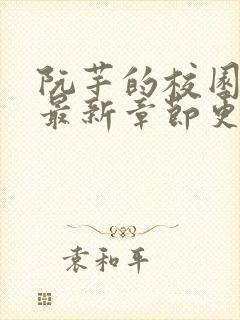 阮芋的校园
最新章节更
袁和平